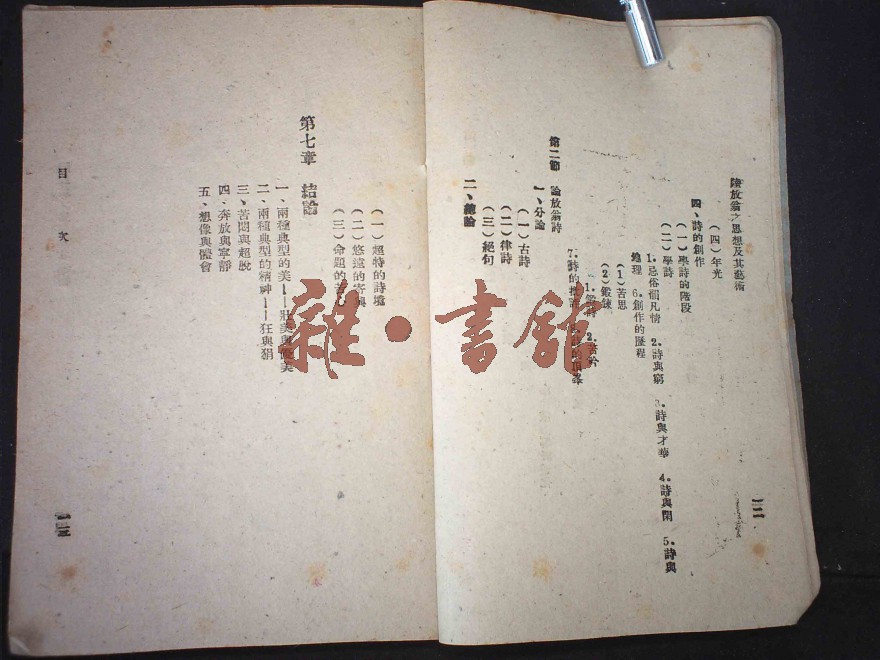 陸放翁之思想及其藝術
(四)年光
四、詩的創作
(一)學詩的階段
(二)學詩
1.忌俗個凡情 2.詩與窮 3.詩與才華 4.詩與閑 5.詩與
地理 6.創作的歷程
(1)苦思
(2)鍛鍊
1.鍛詩 2.苦吟
7.詩的
第二節 論放翁詩
1、分論
(一)古詩
(二)律詩
(三)絕句
二、總論
(一)超特的詩境
(二)悠遠的寄興
(三)命題的苦心
第七章 結論
一、兩種典型的美——壯美與優美
二、兩種典型的精神——狂與狷
三、苦悶與超脫
四、奔放與寧靜
五、想像與體會
目 次
雜·書館